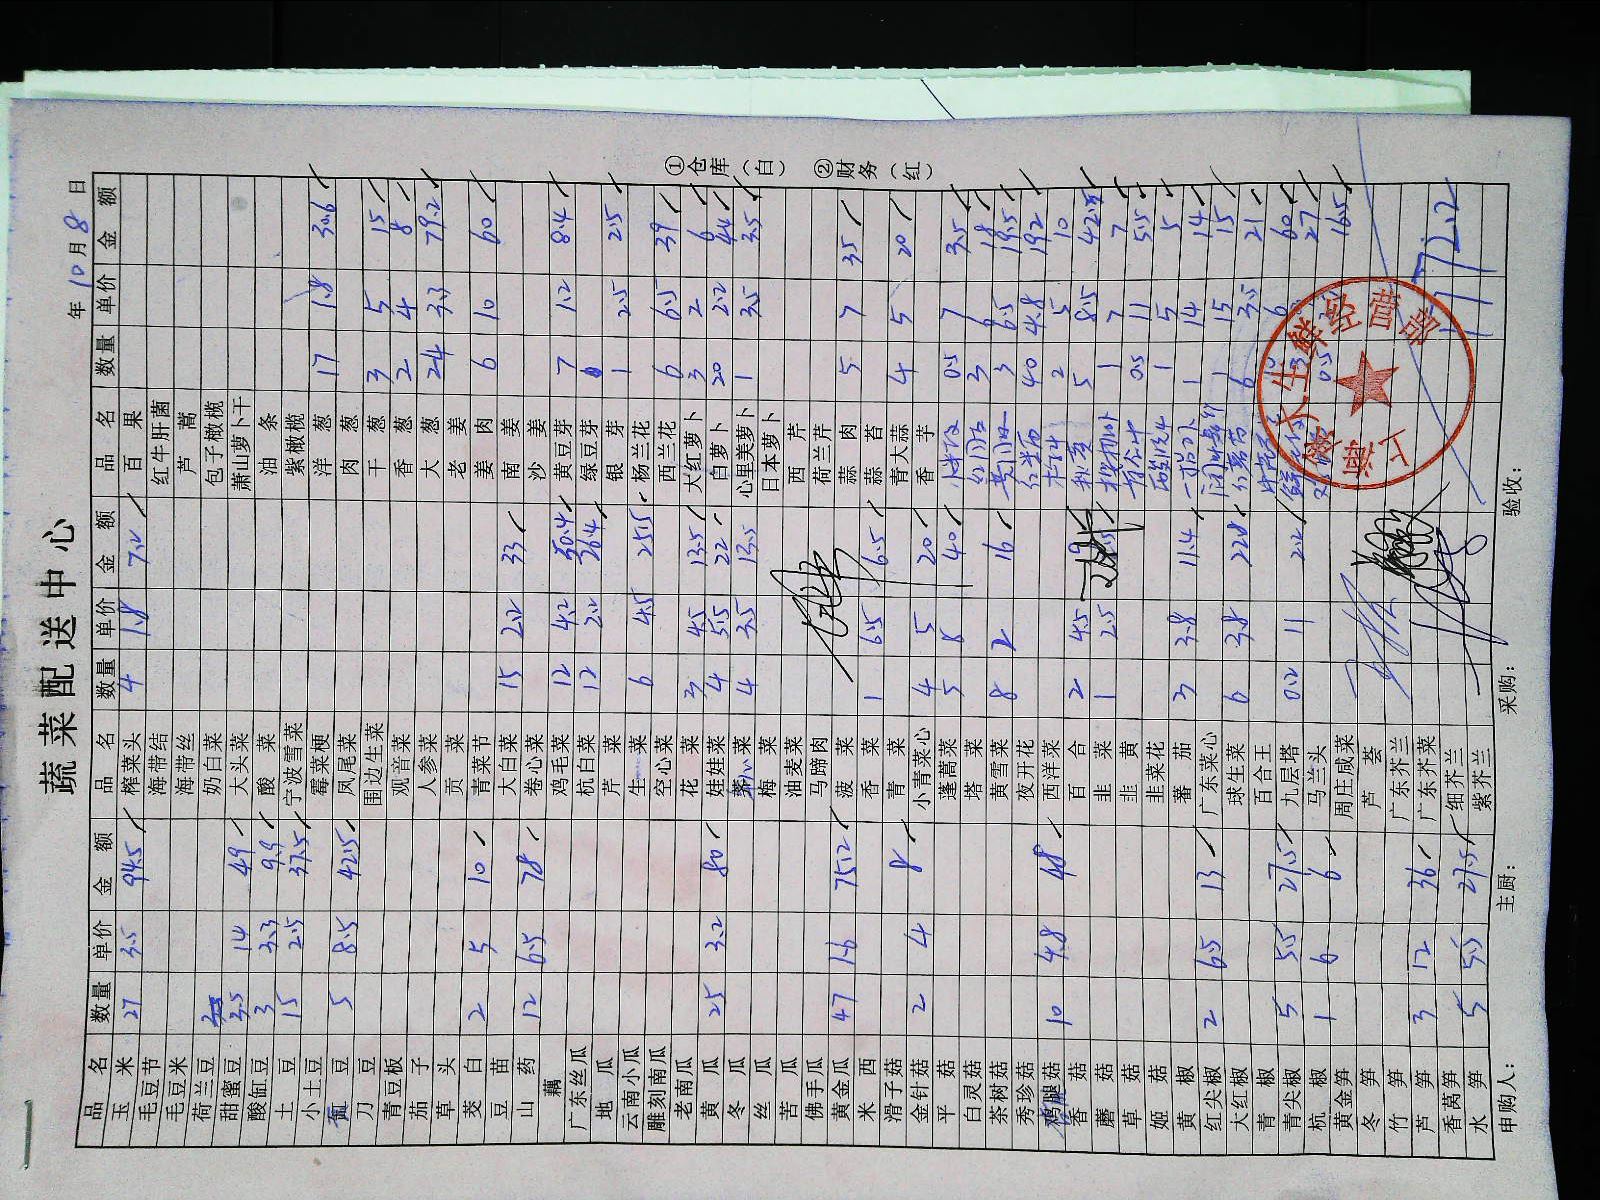 蔬菜配送中心
年 10 月 8 日
品名 数量 单价 金额 品名 数量 单价 金额 品名 数量 单价 金额
玉米 27 3.5 94.5 榨菜头 4 1.8 7.2 百果
毛豆节 海带结 红牛肝菌
毛豆米 海带丝 芦蒿
荷兰豆 奶白菜 包子橄榄
甜蜜豆 3.5 14 49 大头菜 萧山萝卜干
酸缸豆 3 3.3 9.9 酸菜 油条
土豆 15 2.5 37.5 宁波雪菜 紫橄榄
小土豆 霉菜梗 洋葱 17 1.8 30.6
豆 5 8.5 42.5 凤尾菜 肉葱
刀豆 围边生菜 干葱 3 5 15
青豆板 观音菜 香葱 2 4 8
茄子 人参菜 大葱 24 3.3 79.2
草头 贡菜 老姜
茭白 2 5 10 青菜节 姜肉 6 10 60
豆苗 大白菜 15 2.2 33 南姜
山药 12 6.5 78 卷心菜 沙姜
藕 鸡毛菜 12 4.2 50.4 黄豆芽 7 1.2 8.4
广东丝瓜 杭白菜 12 2.2 26.4 绿豆芽
地瓜 芹菜 银芽 1 2.5 2.5
云南小瓜 生菜 6 4.5 25.5 杨兰花
雕刻南瓜 空心菜 西兰花 6 6.5 39
老南瓜 花菜 3 4.5 13.5 大红萝卜 3 2 6
黄瓜 25 3.2 80 娃娃菜 4 5.5 22 白萝卜 20 2.2 44
冬瓜 菜 4 3.5 13.5 心里美萝卜 1 3.5 3.5
丝瓜 梅菜 日本萝卜
苦瓜 油麦菜 西芹
佛手瓜 马蹄肉 荷兰芹
黄金瓜 47 1.6 75.2 菠菜 蒜肉 5 7 35
米西 香菜 1 6.5 6.5 蒜苔
滑子菇 青菜 青大蒜 4 5 20
金针菇 2 4 8 小青菜心 4 5 20 香芋
平菇 蓬蒿菜 5 8 40 0.5 7 3.5
白灵菇 塔菜 3 6 18
茶树菇 黄雪菜 8 2 16 3 6.5 19.5
秀珍菇 夜开花 40 4.8 192
鸡腿菇 10 4.8 48 西洋菜 2 5 10
香菇 百合 2 4.5 9 秋葵 5 8.5 42.5
蘑菇 韭菜 1 2.5 2.5 1 7 7
草菇 韭黄 0.5 11 5.5
姬菇 韭菜花 1 5 5
黄椒 蕃茄 3 3.8 11.4 1 14 14
红尖椒 2 6.5 13 广东菜心 1 15 15
大红椒 球生菜 6 3.8 22.8 6 3.5 21
青椒 百合王 10 6 60
青尖椒 5 5.5 27.5 九层塔 0.2 11 2.2 27
杭椒 1 6 6 马兰头 0.5 16.5
黄金笋 周庄咸菜
冬笋 芦荟
竹笋 广东芥兰
芦笋 3 12 36 广东芥菜 1772.2
香莴笋 细芥兰
水笋 5 5.5 27.5 紫芥兰
申购人： 主厨： 采购： 验收：
①仓库（白） ②财务（红）